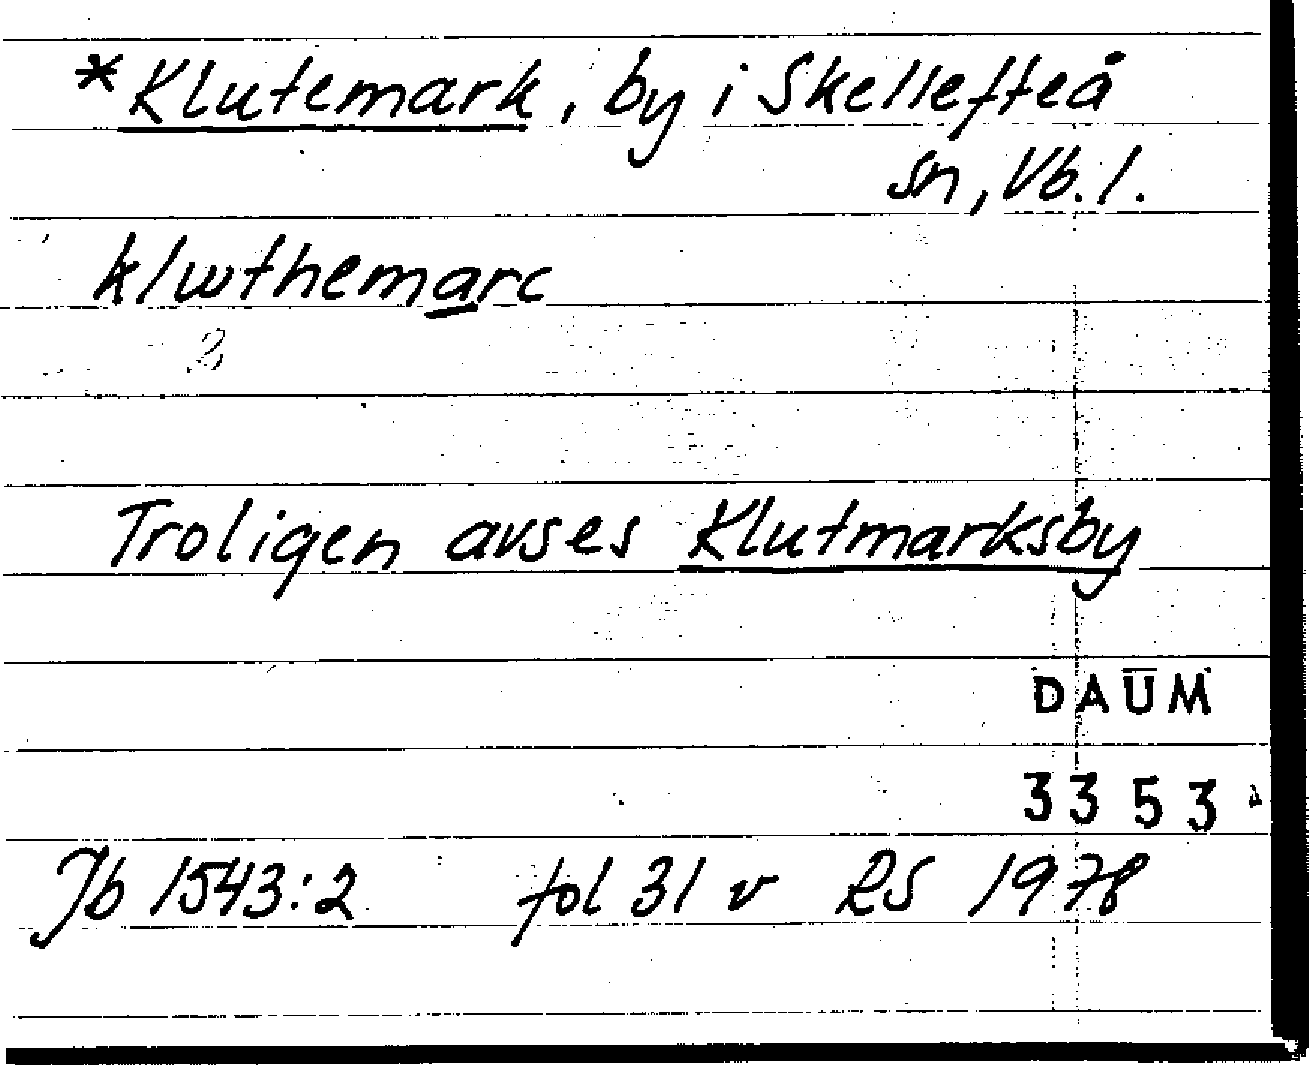 *Klutemark, by i Skellefteå
sn, Vb. l.
klwthemarc
2
Troligen avses Klutmarksby
DAUM
3353
Jb 1543:2 fol 31 v RS 1978